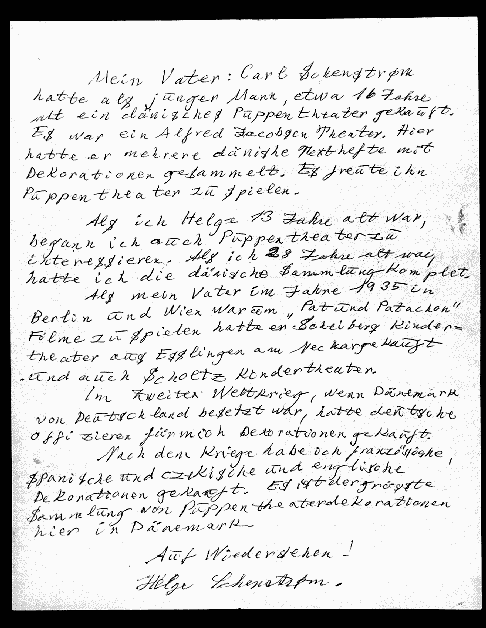 Mein Vater: Carl Schenstrøm
hatte als junger Mann, etwa 16 Jahre
alt ein dänisches Puppentheater gekauft.
Es war ein Alfred Jacobsen Theater. Hier
hatte er mehrere dänishe Texthefte mit
Dekorationen gesammelt. Es freute ihn
Puppentheater zu spielen.
Als ich Helge 13 Jahre alt war,
begann ich auch Puppentheater zu
interessieren. Als ich 28 Jahre alt war
hatte ich die dänische Sammlung Komplet.
Als mein Vater im Jahre 1935 in
Berlin und Wien war um „Pat und Patachon"
Filme zu spielen hatte er Screiberg Kinder=
theater aus Esslingen am Neckar gekauft
und auch Scholtz Kindertheater.
Im zweiten Weltkrieg, wenn Dänemark
von Deutschland besetzt war, hatte deutsche
Offizieren für mich Dekorationen gekauft.
Nach dem Kriege habe ich französishe,
spanische und czekische und englische
Dekorationen gekauft. Es ist der grösste
Sammlung von Puppentheaterdekorationen
hier in Dänemark
Auf Wiedersehen!
Helge Schenstrøm.